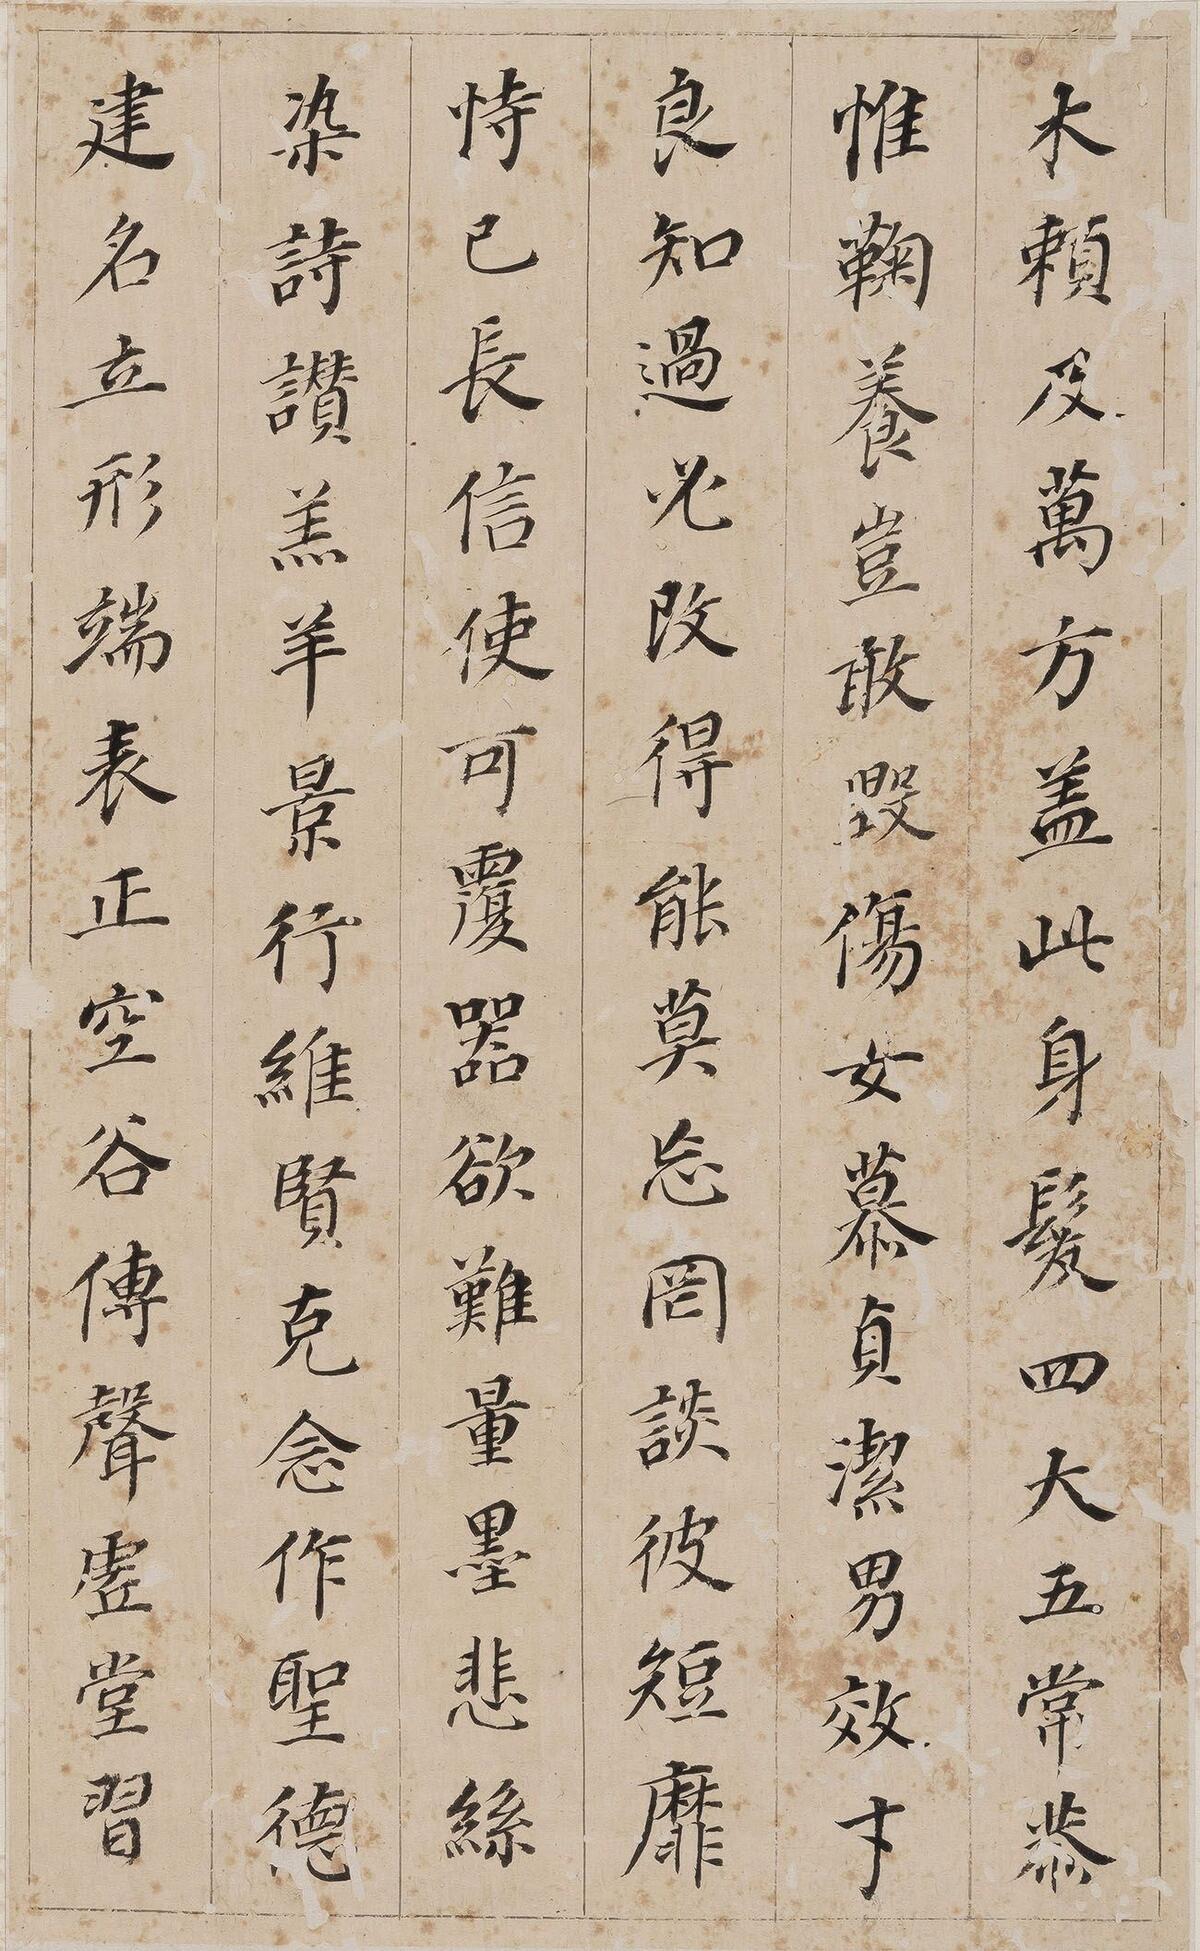 木賴及萬方盖此身髮四大五常恭
惟鞠養豈敢毀傷女慕貞潔男效才
良知過必改得能莫忘罔談彼短靡
恃己長信使可覆器欲難量墨悲絲
染詩讃羔羊景行維賢克念作聖德
建名立形端表正空谷傳聲虛堂習